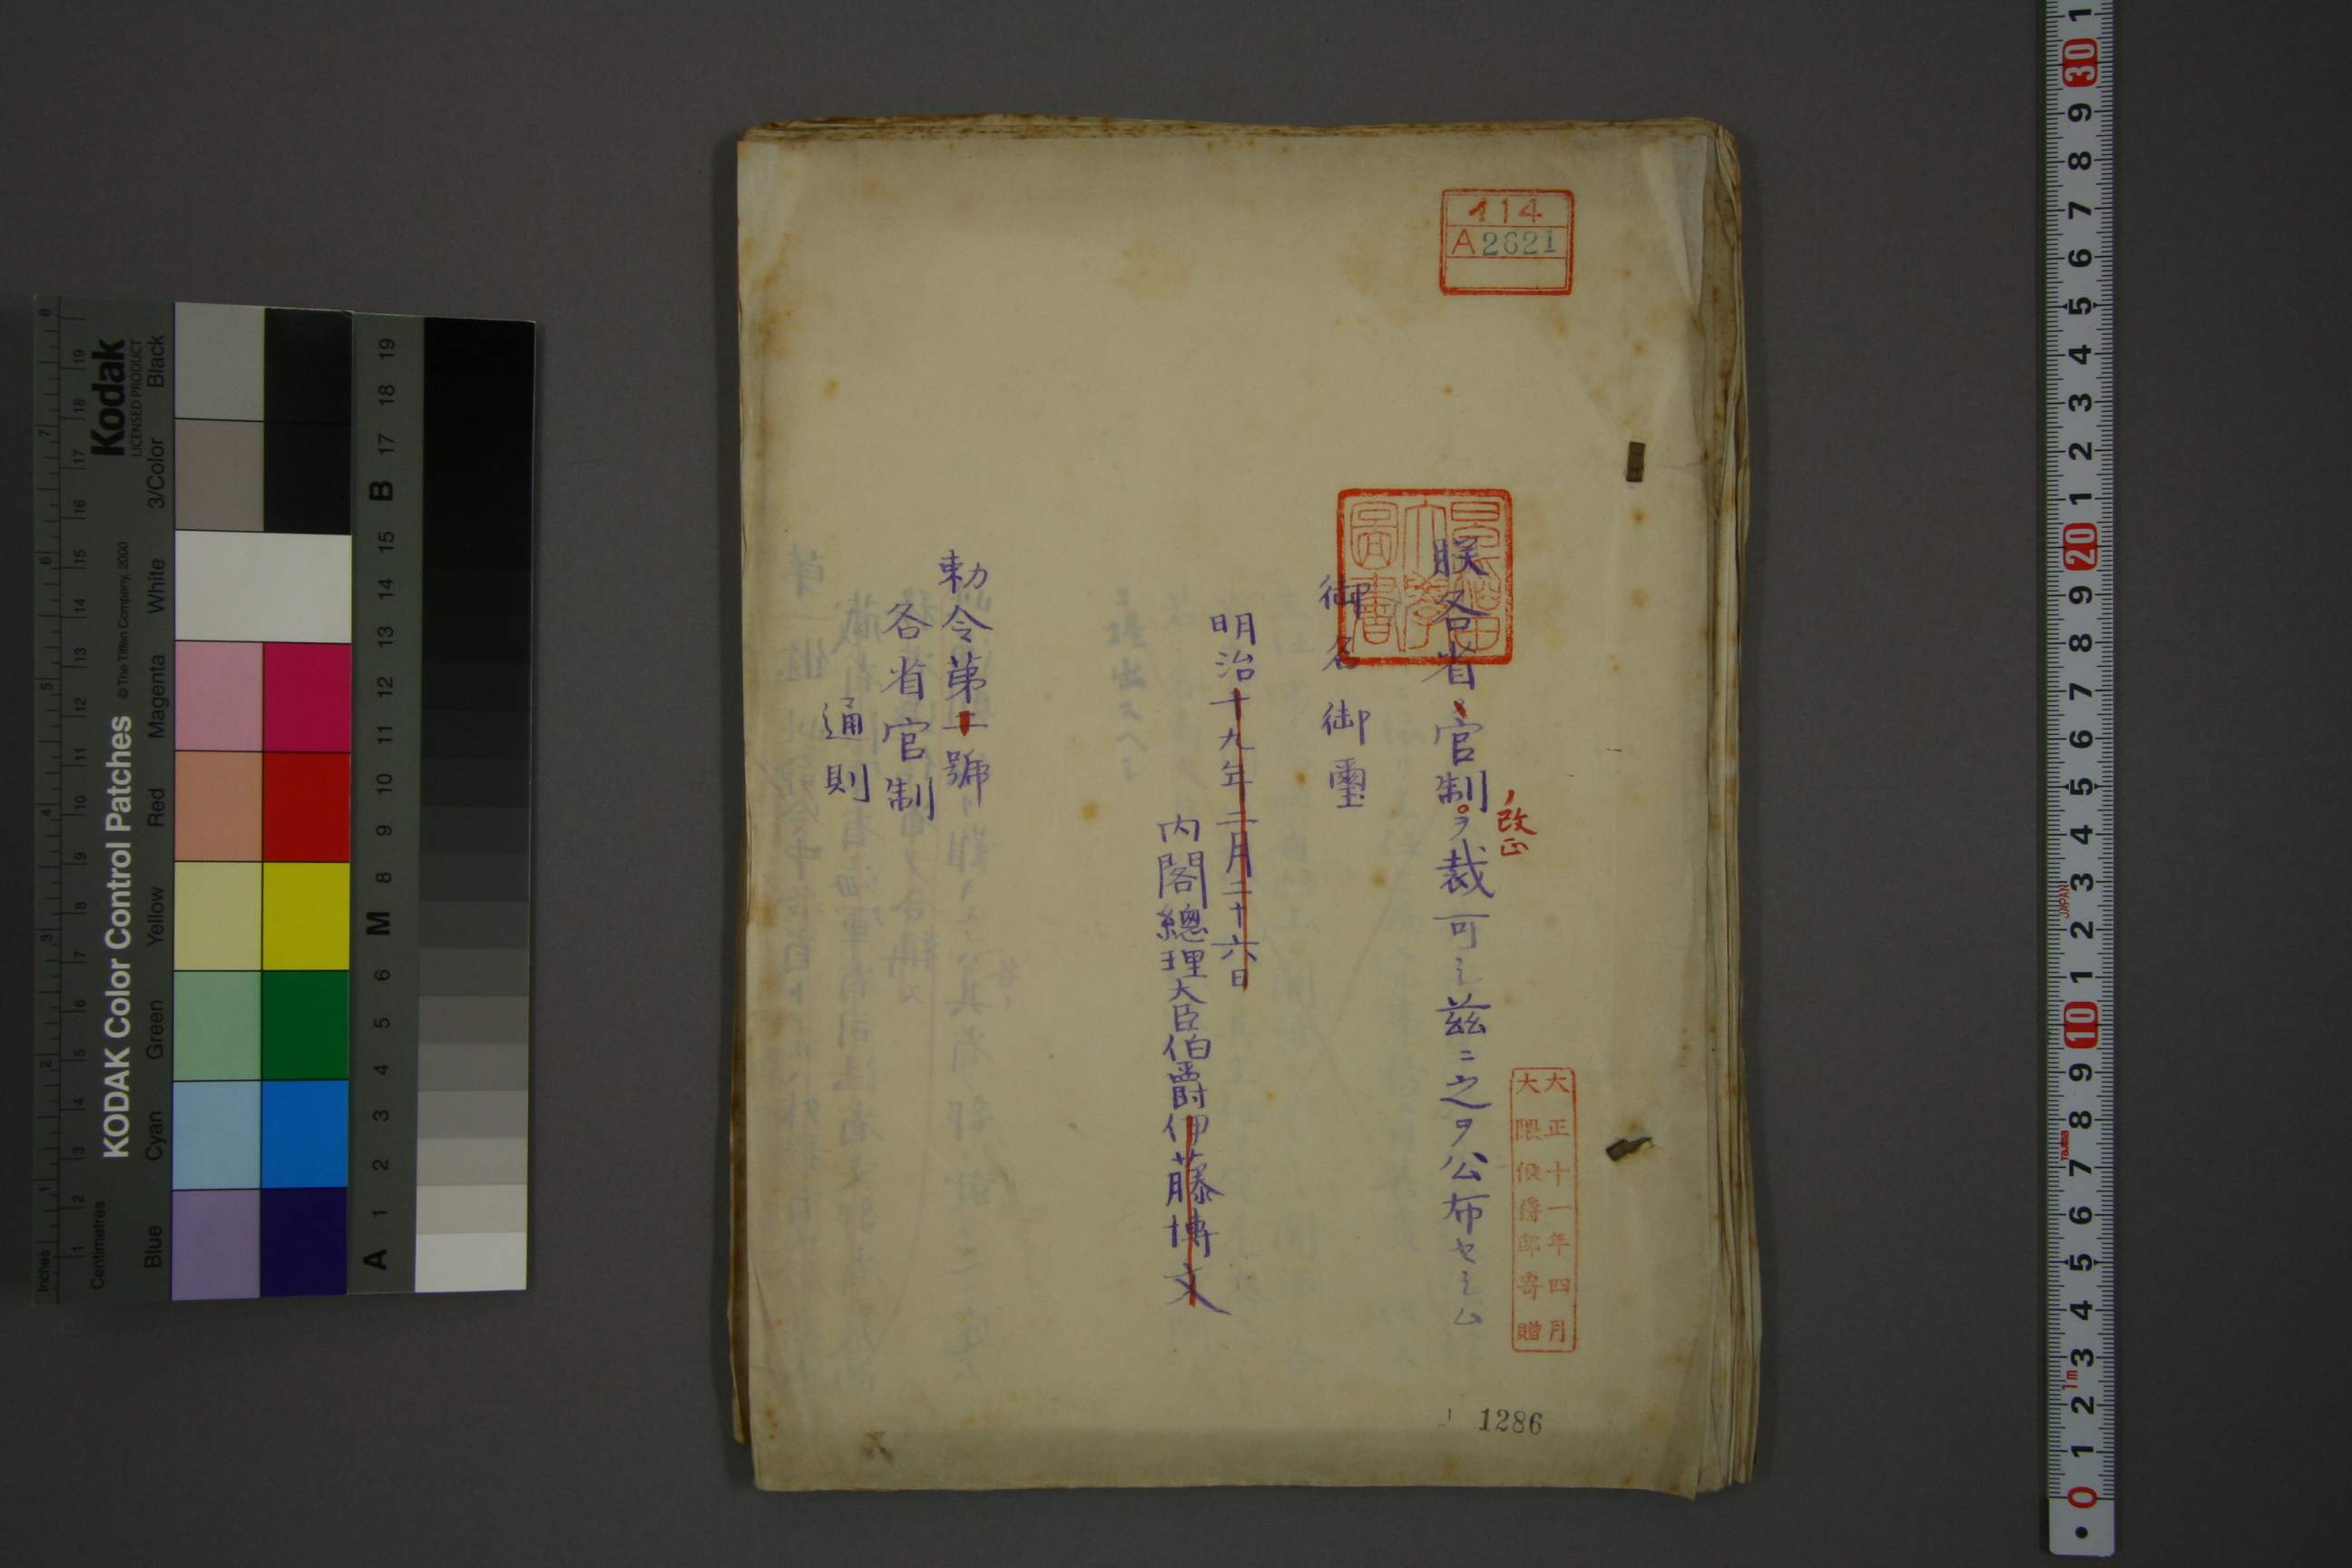 114
A2621
早稲田大學圖書
朕各省官制ヲ裁可シ茲ニ之ヲ公布セシム
改正
御名御璽
明治十九年二月二十六日
内閣總理大臣伯爵伊藤博文
勅令第二號
各省官制
通則
大正十一年四月
大隈侯爵邸寄贈
1286
Kodak
LICENSED PRODUCT
KODAK Color Control Patches
© The Tiffen Company, 2000
Inches
Centimetres
Blue
Cyan
Green
Yellow
Red
Magenta
White
3/Color
Black
A 1 2 3 4 5 6 M 8 9 10 11 12 13 14 15 B 17 18 19
JAPAN
1m